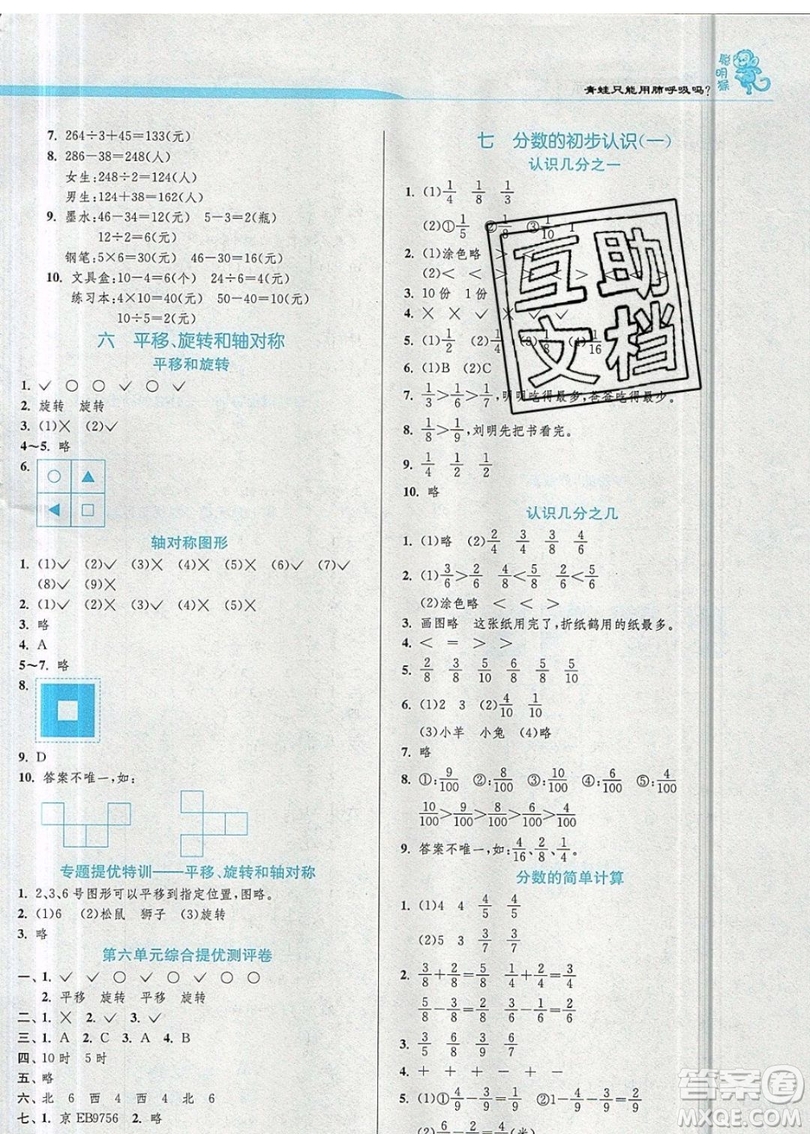 聪明猴
青蛙只能用肺呼吸吗?
7. 264÷3+45=133(元)
8. 286-38=248(人)
女生:248÷2=124(人)
男生:124+38=162(人)
9. 墨水:46-34=12(元) 5-3=2(瓶)
12÷2=6(元)
钢笔:5×6=30(元) 46-30=16(元)
10. 文具盒:10-4=6(个) 24÷6=4(元)
练习本:4×10=40(元) 50-40=10(元)
10÷5=2(元)
六 平移、旋转和轴对称
平移和旋转
1. ✓ ○ ○ ✓ ○
2. 旋转 旋转
3. (1)× (2)✓
4~5. 略
6.
轴对称图形
1. (1)✓ (2)✓ (3)× (4)× (5)× (6)✓ (7)✓
(8)✓ (9)×
2. (1)✓ (2)✓ (3)✓ (4)× (5)×
3. 略
4. A
5~7. 略
8.
9. D
10. 答案不唯一,如:
专题提优特训——平移、旋转和轴对称
1. 2、3、6 号图形可以平移到指定位置,图略。
2. (1)6 (2)松鼠 狮子 (3)旋转
3. 略
第六单元综合提优测评卷
一、1. ✓ ✓ ○ ✓ ○ ✓ ○ ○
2. 平移 旋转 平移 旋转
二、1. × 2. ✓ 3. ✓
三、1. A 2. C 3. A 4. B
四、10 时 5 时
五、略
六、北 6 西 4 西 4 北 6
七、1. 京 EB9756 2. 略
七 分数的初步认识(一)
认识几分之一
1. (1)1/4 1/8 1/3
(2)①1/5 ②1/8 ③1/10 1
2. (1)涂色略 > > >
(2)< < >
3. 10 份 1 份
4. × × × ✓
5. (1)1/2 (2) 1/16
6. (1)B (2)C
7. 1/3>1/4>1/5,明明吃得最多,爸爸吃得最少。
8. 1/8>1/9,刘明先把书看完。
9. 1/4 1/2 1/2
10. 略
认识几分之几
1. (1)略 (2)2/4 3/4 4/8 3/8
2. (1)3/6>2/6 4/8<5/8 2/5<3/5
(2)涂色略 < < >
3. 画图略 这张纸用完了,折纸鹤用的纸最多。
4. < = > >
5. 2/8 3/8 5/10 5/10
6. (1)2 3 (2)4/10 6/10
(3)小羊 小兔 (4)略
7. 略
8. ①:9/100 ②:8/100 ③:10/100 ④:5/100 ⑤:6/100
10/100>9/100>8/100>6/100>5/100
9. 答案不唯一,如:4/16、2/8、1/4。
分数的简单计算
1. (1)4 4 4/5 4/5
(2)5 2 3/7 3/7
2. 3/8+2/8=5/8 1/4+1/4=2/4
5/8-3/8=2/8 6/9-3/9=3/9
3. 3/5 4/4 6/8 3/9
4. + + - + -
5. (1)4/9-3/9=1/9 (2)5/9-1/9=4/9
6/10-4/10=2/10(米)
互助文档
答案圈
MXQE.COM